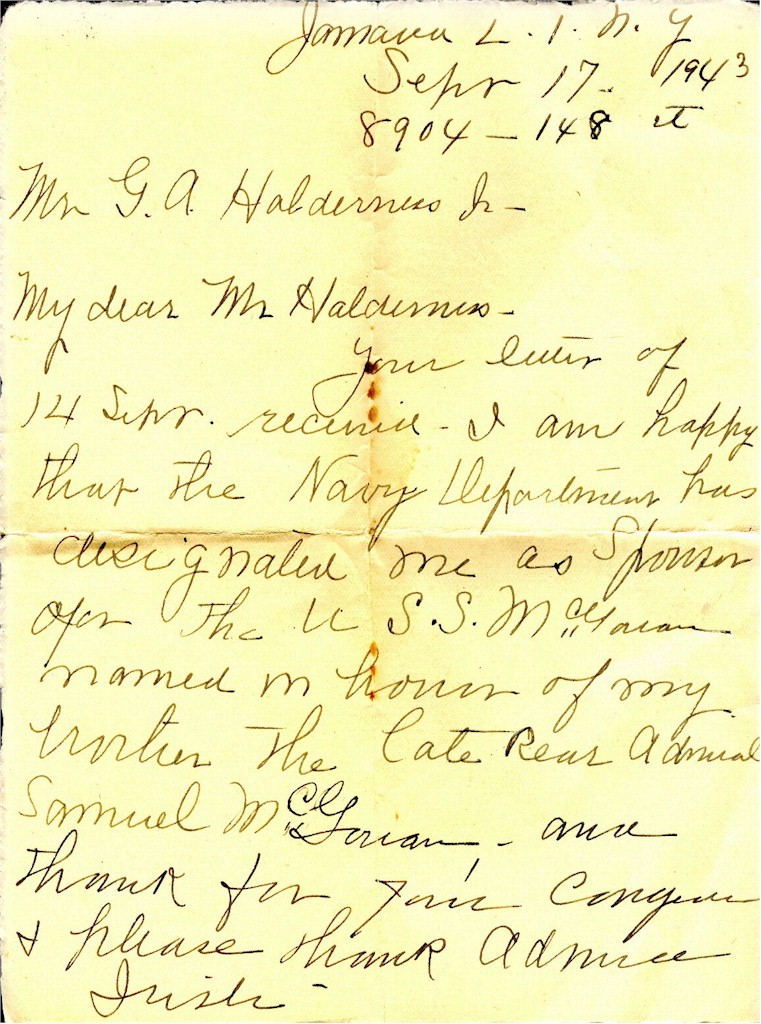 Jamaica L. I. N. Y
Sepr 17 - 1943
8904 - 148 st
Mr G. A. Holderness Jr -
My dear Mr Holderness -
Your letter of
14 Sepr. received - I am happy
that the Navy Department has
designated me as Sponsor
for The U S. S. McGowan
named in honor of my
brother The late Rear Admiral
Samuel McGowan, - and
thank for your
& please thank Admiral
Irish -